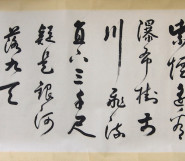 紫烟遥看
瀑布掛前
川飛流
直下三千尺
疑是銀河
落九天